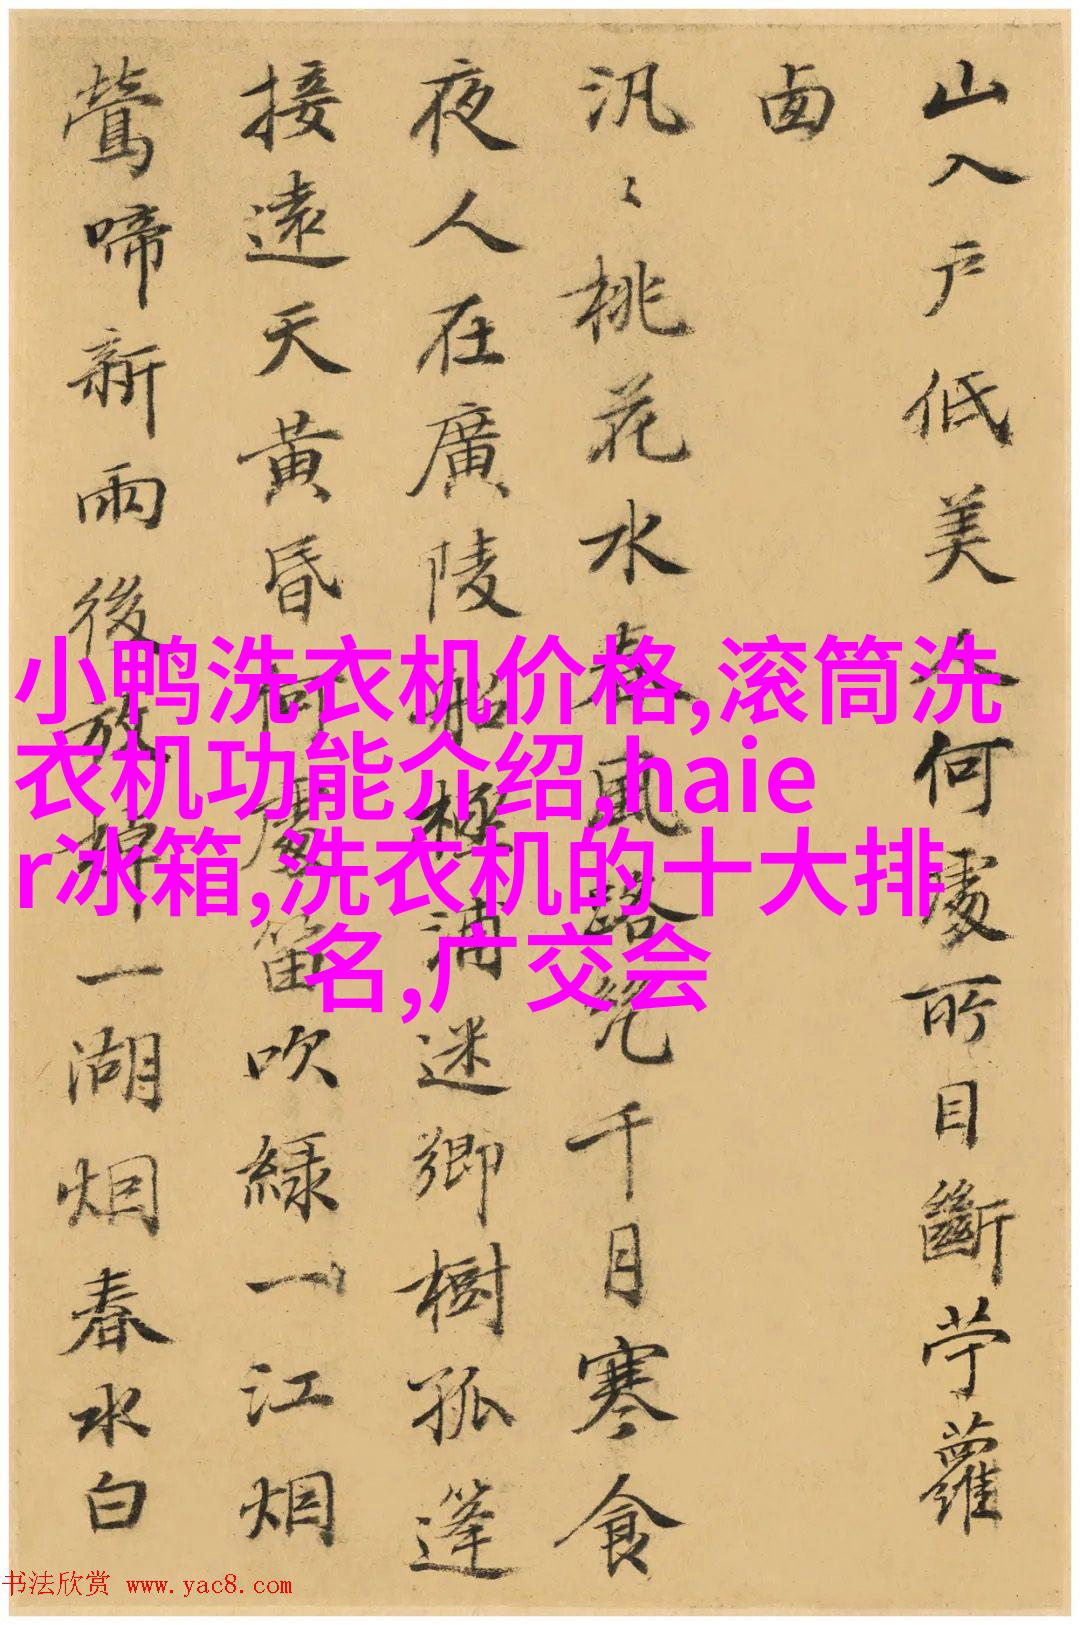 山入戶低美人何處所目斷苧蘿
汎〻桃花水春風路絕千月寒食
夜人在廣陵船極浦迷鄉樹孤篷
接遠天黃昏何處笛吹綠一江烟
鶯啼新雨後放棹一湖烟春水白
小鸭洗衣机价格,滚筒洗
衣机功能介绍,haie
r冰箱,洗衣机的十大排
名,广交会
书法欣赏 www.yac8.com